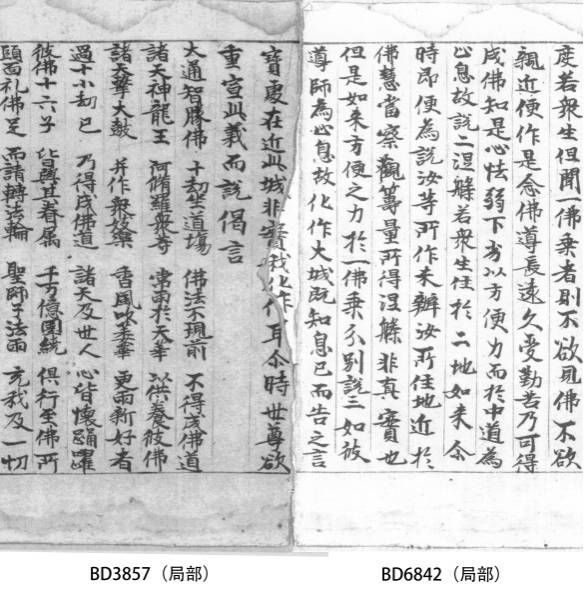 度若衆生但聞一佛乘者則不欲見佛不欲
親近便作是念佛導長遠久受勤苦乃可得
成佛知是心怯弱下劣以方便力而於中道為
止息故說二涅槃若衆生住於二地如来尒
時即便為說汝等所作未辦汝所住地近於
佛慧當察觀籌量所得涅槃非真實也
但是如来方便之力於一佛乘分別說三如彼
導師為止息故化作大城既知息已而告之言
寶處在近此城非實我化作耳尒時世尊欲
重宣此義而說偈言
大通智勝佛 十劫坐道場 佛法不現前 不得成佛道
諸天神龍王 阿脩羅衆等 常雨於天華 以供養彼佛
諸天擊天鼓 并作衆伎樂 香風吹萎華 更雨新好者
過十小劫已 乃得成佛道 諸天及世人 心皆懷踊躍
彼佛十六子 皆與其眷属 千万億圍繞 俱行至佛所
頭面礼佛足 而請轉法輪 聖師子法雨 充我及一切
BD3857（局部）
BD6842（局部）